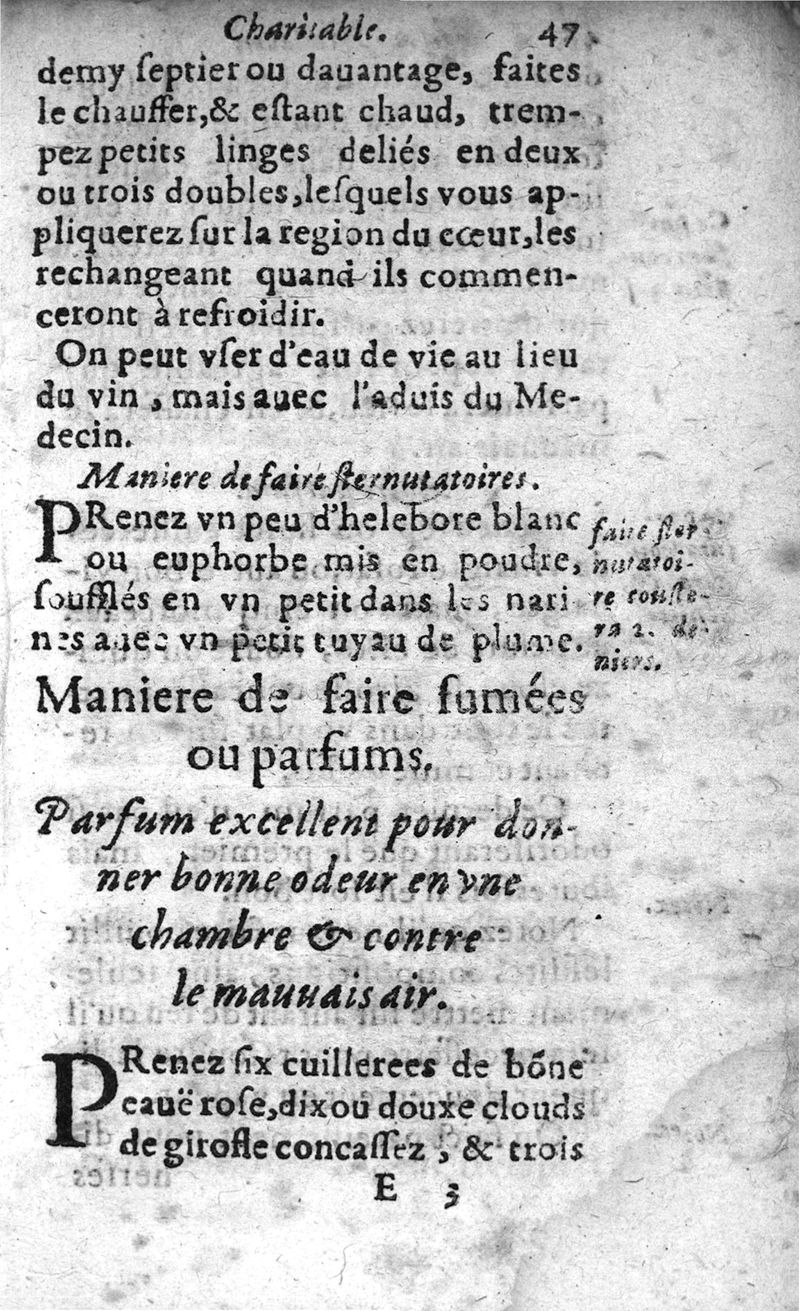 Charitable. 47
demy ſeptier ou dauantage, faites
le chauffer,& eſtant chaud, trem-
pez petits linges deliés en deux
ou trois doubles,leſquels vous ap-
pliquerez ſur la region du cœur,les
rechangeant quand ils commen-
ceront à refroidir.
On peut vſer d'eau de vie au lieu
du vin , mais auec l'aduis du Me-
decin.
Maniere de faire ſternutatoires.
PRenez vn peu d'helebore blanc
ou euphorbe mis en poudre,
ſoufflés en vn petit dans les nari
nes auec vn petit tuyau de plume.
faire ſter
nutatoi-
re couſte-
ra 2. de
niers.
Maniere de faire fumées
ou parfums.
Parfum excellent pour don-
ner bonne odeur en vne
chambre & contre
le mauuais air.
PRenez ſix cuillerees de bõne
eauë roſe,dix ou douxe clouds
de girofle concaſſez , & trois
E 3